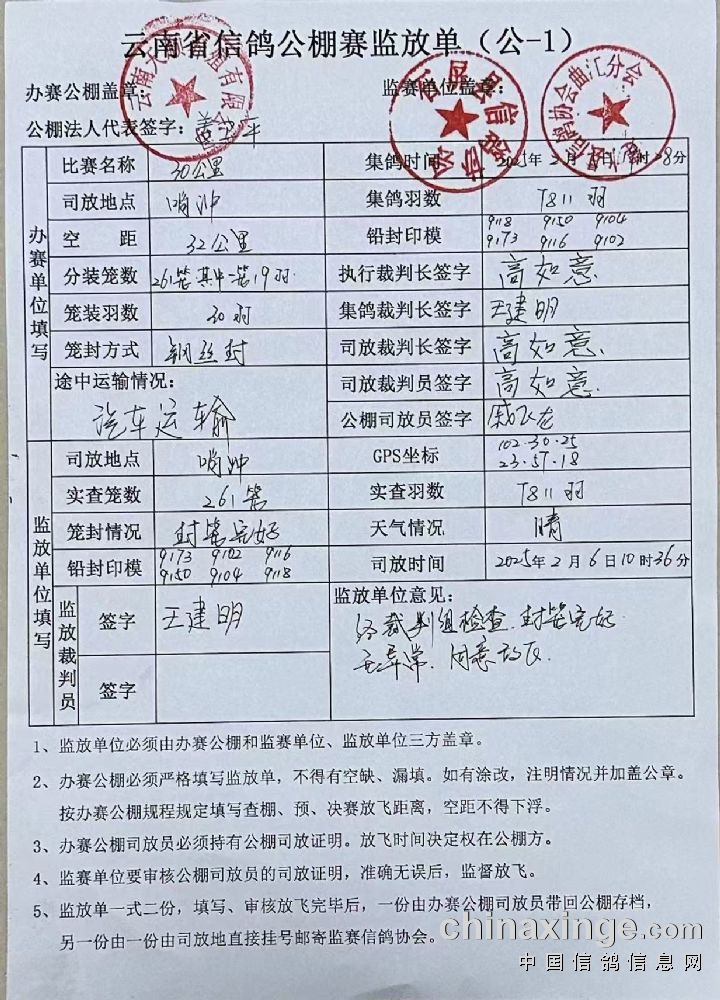 云南省信鸽公棚赛监放单（公-1）
办赛公棚盖章：
监赛单位盖章：
公棚法人代表签字：
办赛单位填写
比赛名称 30公里 集鸽时间 2025年2月 日19时28分
司放地点 哨冲 集鸽羽数 7811羽
空 距 32公里 铅封印模 9118 9150 9104
9173 9116 9102
分装笼数 261笼其中一笼19羽. 执行裁判长签字 高如意
笼装羽数 30羽 集鸽裁判长签字 王建明
笼封方式 钢丝封 司放裁判长签字 高如意.
途中运输情况： 司放裁判员签字 高如意.
汽车运输 公棚司放员签字
监放单位填写
司放地点 哨冲 GPS坐标 102.30.25
23.57.18
实查笼数 261笼 实查羽数 7811羽
笼封情况 封笼完好 天气情况 晴
铅封印模 9173 9102 9116
9150 9104 9118
司放时间 2025年2月6日10时36分
监放裁判员 签字 王建明 监放单位意见：
经裁判组检查.封笼完好.
无异常.同意放飞.
签字
1、监放单位必须由办赛公棚和监赛单位、监放单位三方盖章。
2、办赛公棚必须严格填写监放单，不得有空缺、漏填。如有涂改，注明情况并加盖公章。
按办赛公棚规程规定填写查棚、预、决赛放飞距离，空距不得下浮。
3、办赛公棚司放员必须持有公棚司放证明。放飞时间决定权在公棚方。
4、监赛单位要审核公棚司放员的司放证明，准确无误后，监督放飞。
5、监放单一式二份，填写、审核放飞完毕后，一份由办赛公棚司放员带回公棚存档，
另一份由一份由司放地直接挂号邮寄监赛信鸽协会。
chinaxinge.com
中国信鸽信息网